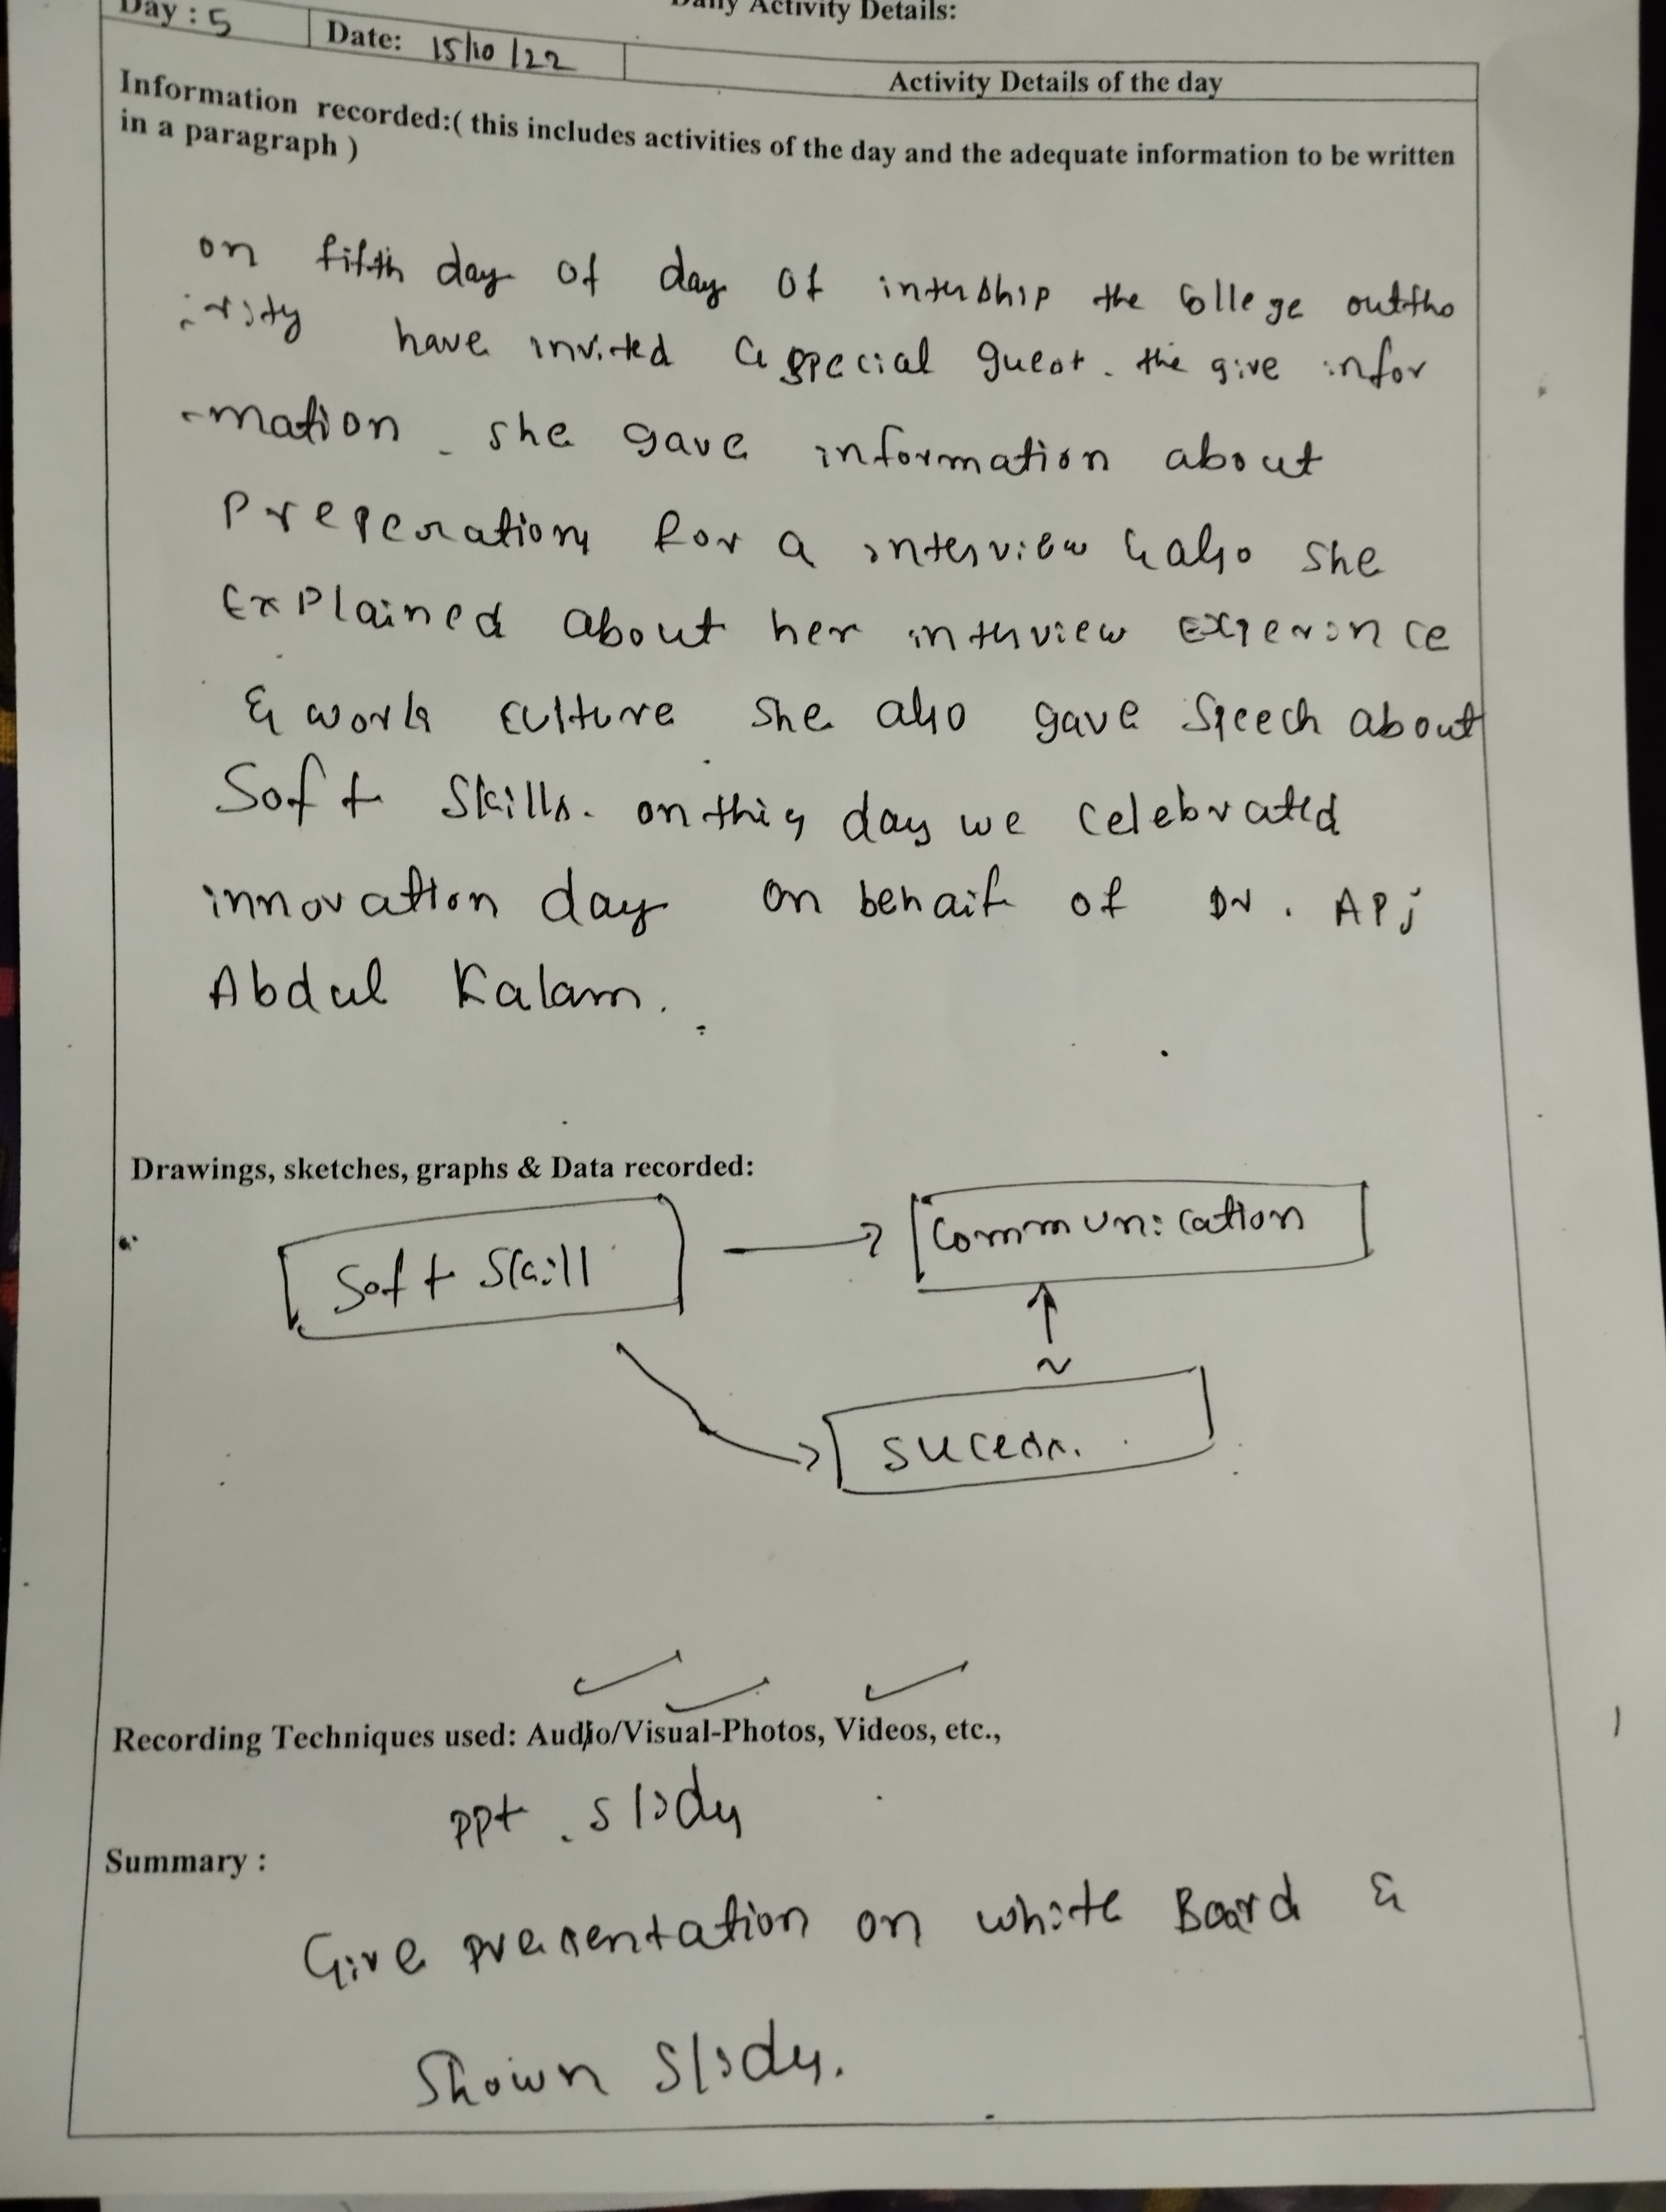 Daily Activity Details:
Day : 5 Date: 15/10/22
Activity Details of the day
Information recorded:( this includes activities of the day and the adequate information to be written
in a paragraph )
on fifth day of day of intership the College outtho
-rity have invited a special guest. the give infor
-mation. she gave information about
Preperation for a interview & also she
Explained about her interview Experince
& work culture she also gave Speech about
Soft Skills. on this day we celebrated
innovation day on behalf of Dr. APj
Abdul Kalam.
Drawings, sketches, graphs & Data recorded:
Soft Skill
Communication
sucess.
Recording Techniques used: Audio/Visual-Photos, Videos, etc.,
ppt. slides
Summary :
Give presentation on white Board &
Shown Slides.